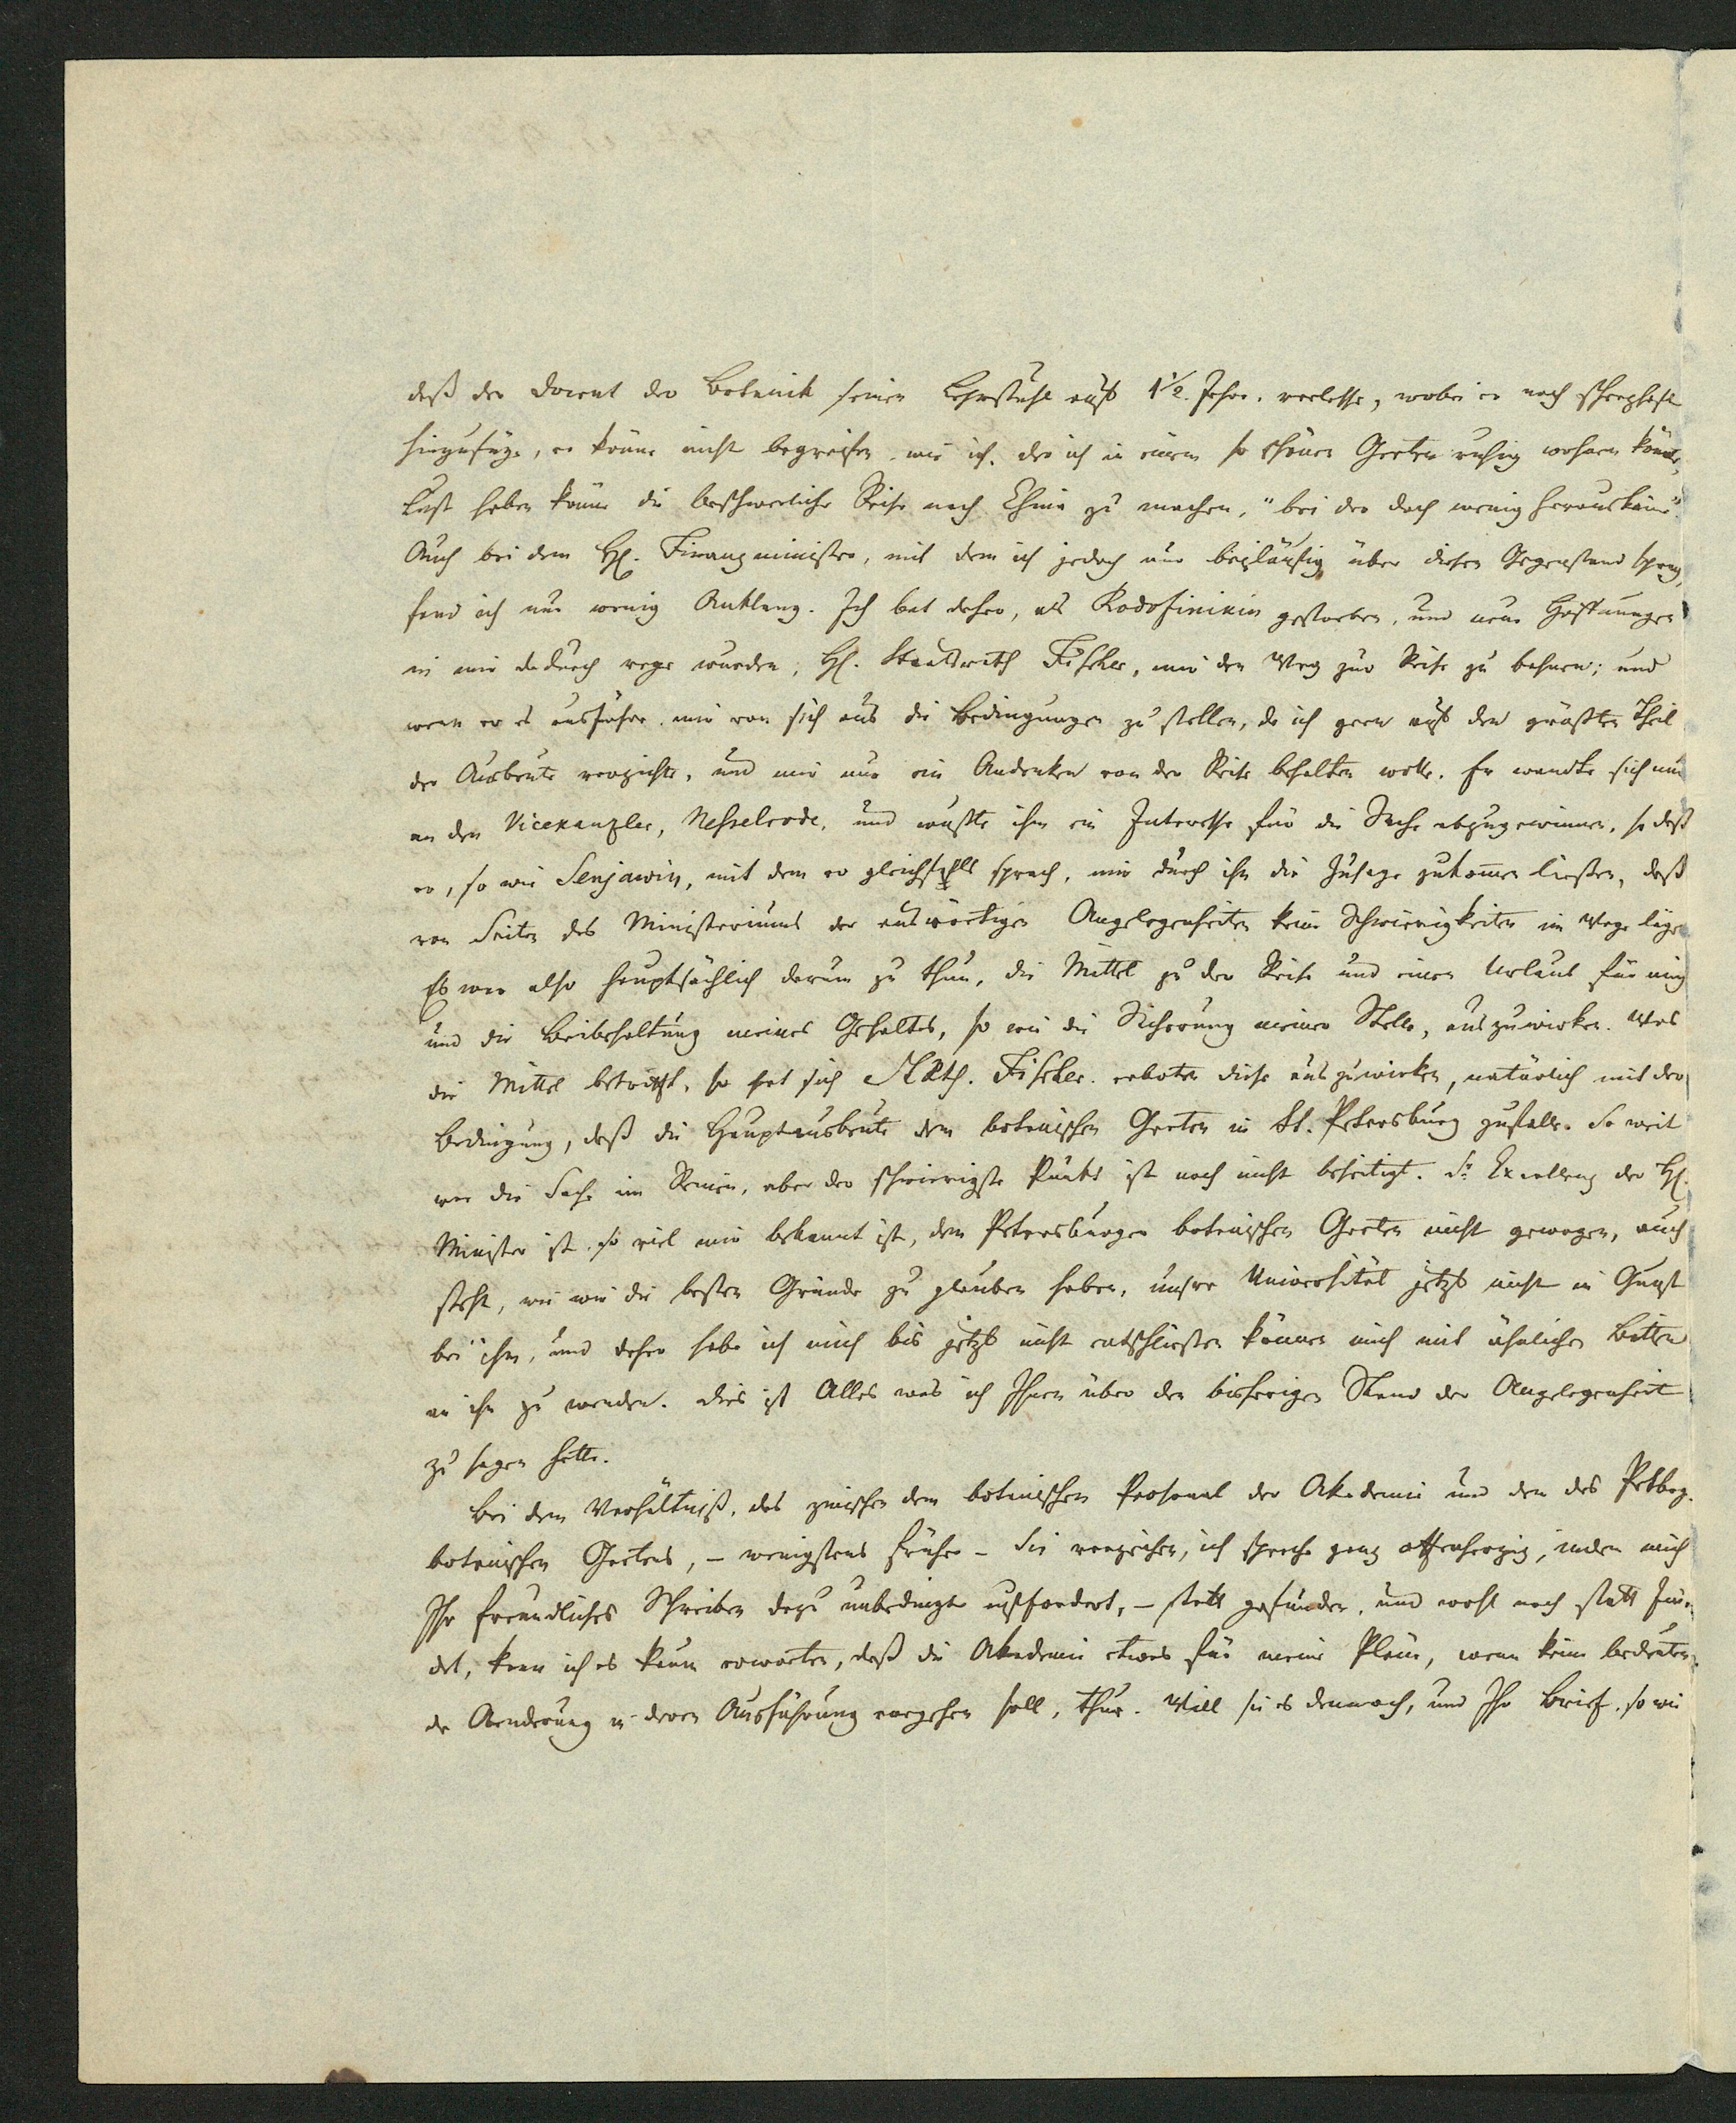 daß der Docent der Botanik seinen Lehrstuhl auf 1½ Jahr. verlasse, wobei er noch scherzhaft
hinzufüge, er könne nicht begreifen wie ich, der ich in einem so schönen Garten ruhig wohnen könnte,
Lust haben könne die beschwerliche Reise nach China zu machen, "bei der doch wenig herauskäme".
Auch bei dem H. Finanzminister, mit dem ich jedoch nur beiläufig über diesen Gegenstand sprach,
fand ich nur wenig Anklang. Ich bat daher, als Rodofinikin gestorben, und neue Hoffnungen
in mir dadurch rege wurden, H. Staatsrath Fischer, mir den Weg zur Reise zu bahnen; und
wenn er es ausführe, mir von sich aus die Bedingungen zu stellen, da ich gern auf den größten Theil
der Ausbeute verzichte, und mir nur ein Andenken von der Reise behalten wolle. Er wandte sich nun
an den Vicekanzler, Nesselrode, und wußte ihm ein Interesse für die Sache abzugewinnen, so daß
er, so wie Senjawin, mit dem er gleichfalls sprach, mir durch ihn die Zusage zukommen ließen, daß
von Seiten des Ministeriums der auswärtigen Angelegenheiten keine Schwierigkeiten im Wege lägen
Es war also hauptsächlich darum zu thun, die Mittel zu der Reise und einen Urlaub für mich
und die Beibehaltung meines Gehaltes, so wie die Sicherung meiner Stelle, auszuwirken. Was
die Mittel betrifft, so hat sich StRth. Fischer erboten diese auszuwirken, natürlich mit der
Bedingung, daß die Hauptausbeute dem botanischen Garten in St. Petersburg zufalle. So weit
war die Sache im Reinen, aber der schwierigste Punkt ist noch nicht beseitigt. Se Excellenz der H.
Minister ist, so viel mir bekannt ist, dem Petersburger botanischen Garten nicht gewogen, auch
steht, wie wir die besten Gründe zu glauben haben, unsre Universität jetzt nicht in Gunst
bei ihm, und daher habe ich mich bis jetzt nicht entschließen können mich mit ähnlichen Bitten
an ihn zu wenden. Dies ist Alles was ich Ihnen über den bisherigen Stand der Angelegenheit
zu sagen hätte.
Bei dem Verhältniß, das zwischen dem botanischen Personal der Akademie und dem des Petbrg.
botanischen Gartens, – wenigstens früher – Sie verzeihen, ich spreche ganz offenherzig, indem mich
Ihr freundliches Schreiben dazu unbedingt auffordert, – statt gefunden, und wohl noch statt fin-
det, kann ich es kaum erwarten, daß die Akademie etwas für meine Pläne, wenn keine bedeuten-
de Aenderung in deren Ausführung vorgehen soll, thue. Will sie es dennoch, und Ihr Brief, so wie